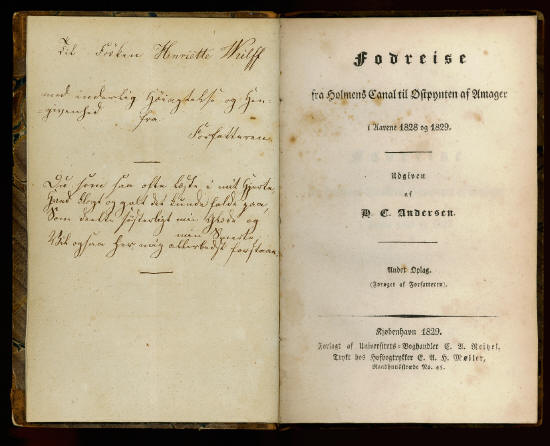 Til Frøken Henriette Wulff
med inderlig Høiagtelse og Hen-
givenhed fra
Forfatteren.
Du, som saa ofte læste i mit Hjerte,
Hvad klogt og galt det kunde falde paa,
Som deelte søsterligt min Glæde og
min Smerte,
Vil ogsaa her mig allerbedst forstaae.
Fodreise
fra Holmens Canal til Østpynten af Amager
i Aarene 1828 og 1829.
Udgiven
af
H. C. Andersen.
Andet Oplag.
(Forøget af Forfatteren).
Kjøbenhavn 1829.
Forlagt af Universitets-Boghandler C. A. Reitzel.
Trykt hos Hofbogtrykker E. A. H. Møller,
Raadhuusstræde No. 45.